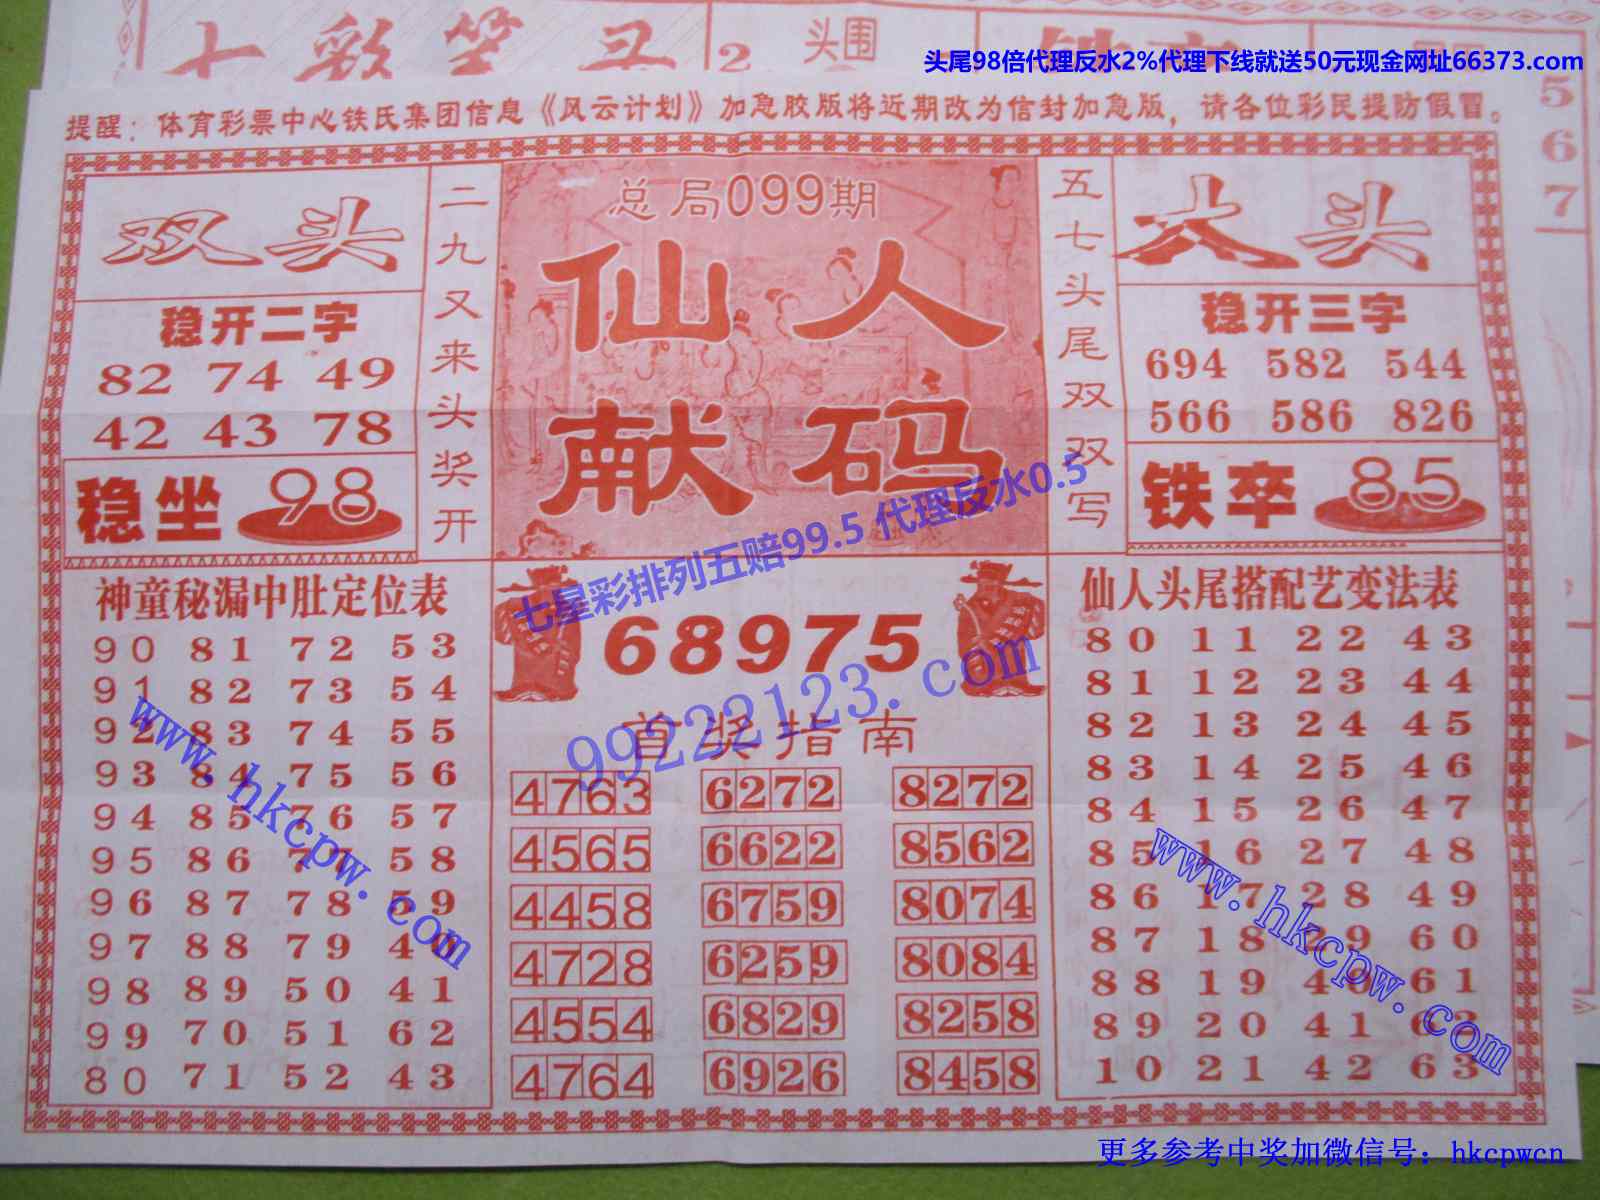 七彩笑
2
头围
头尾98倍代理反水2%代理下线就送50元现金网址66373.com
5
6
7
提醒：体育彩票中心铁氏集团信息《风云计划》加急胶版将近期改为信封加急版，请各位彩民提防假冒。
双头
稳开二字
82 74 49
42 43 78
稳坐 98
二九又来头奖开
总局099期
仙人
献码
五七头尾双双写
大头
稳开三字
694 582 544
566 586 826
铁卒 85
七星彩排列五赔99.5 代理反水0.5
神童秘漏中肚定位表
90 81 72 53
91 82 73 54
92 83 74 55
93 84 75 56
94 85 76 57
95 86 77 58
96 87 78 59
97 88 79 40
98 89 50 41
99 70 51 62
80 71 52 43
68975
99222123.com
首奖指南
4763 6272 8272
4565 6622 8562
4458 6759 8074
4728 6259 8084
4554 6829 8258
4764 6926 8458
仙人头尾搭配艺变法表
80 11 22 43
81 12 23 44
82 13 24 45
83 14 25 46
84 15 26 47
85 16 27 48
86 17 28 49
87 18 29 60
88 19 40 61
89 20 41 62
10 21 42 63
www.hkcpw.com
www.hkcpw.com
更多参考中奖加微信号：hkcpwcn